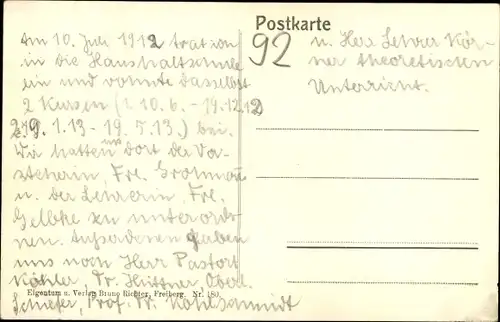 Postkarte
92
Am 10. Juni 1912 trat ich
in die Haushaltschule
ein und wohnte daselbst
2 Kursen (1. 10.6. - 19.12.12
2. 9.1.13 - 19.5.13.) bei.
Wir hatten uns dort der Vor-
steherin, Frl. Grohmann
u. der Lehrerin, Frl.
Gelbke zu unterord-
nen. Außerdenen gaben
uns noch Herr Pastor
Köhler, Dr. Hüttner, Oberl.
Schiefer, Prof. Dr. Kohlschmidt
u. Herr Lehrer Kör-
ner theoretischen
Unterricht.
Eigentum u. Verlag Bruno Richter, Freiberg. Nr. 180.